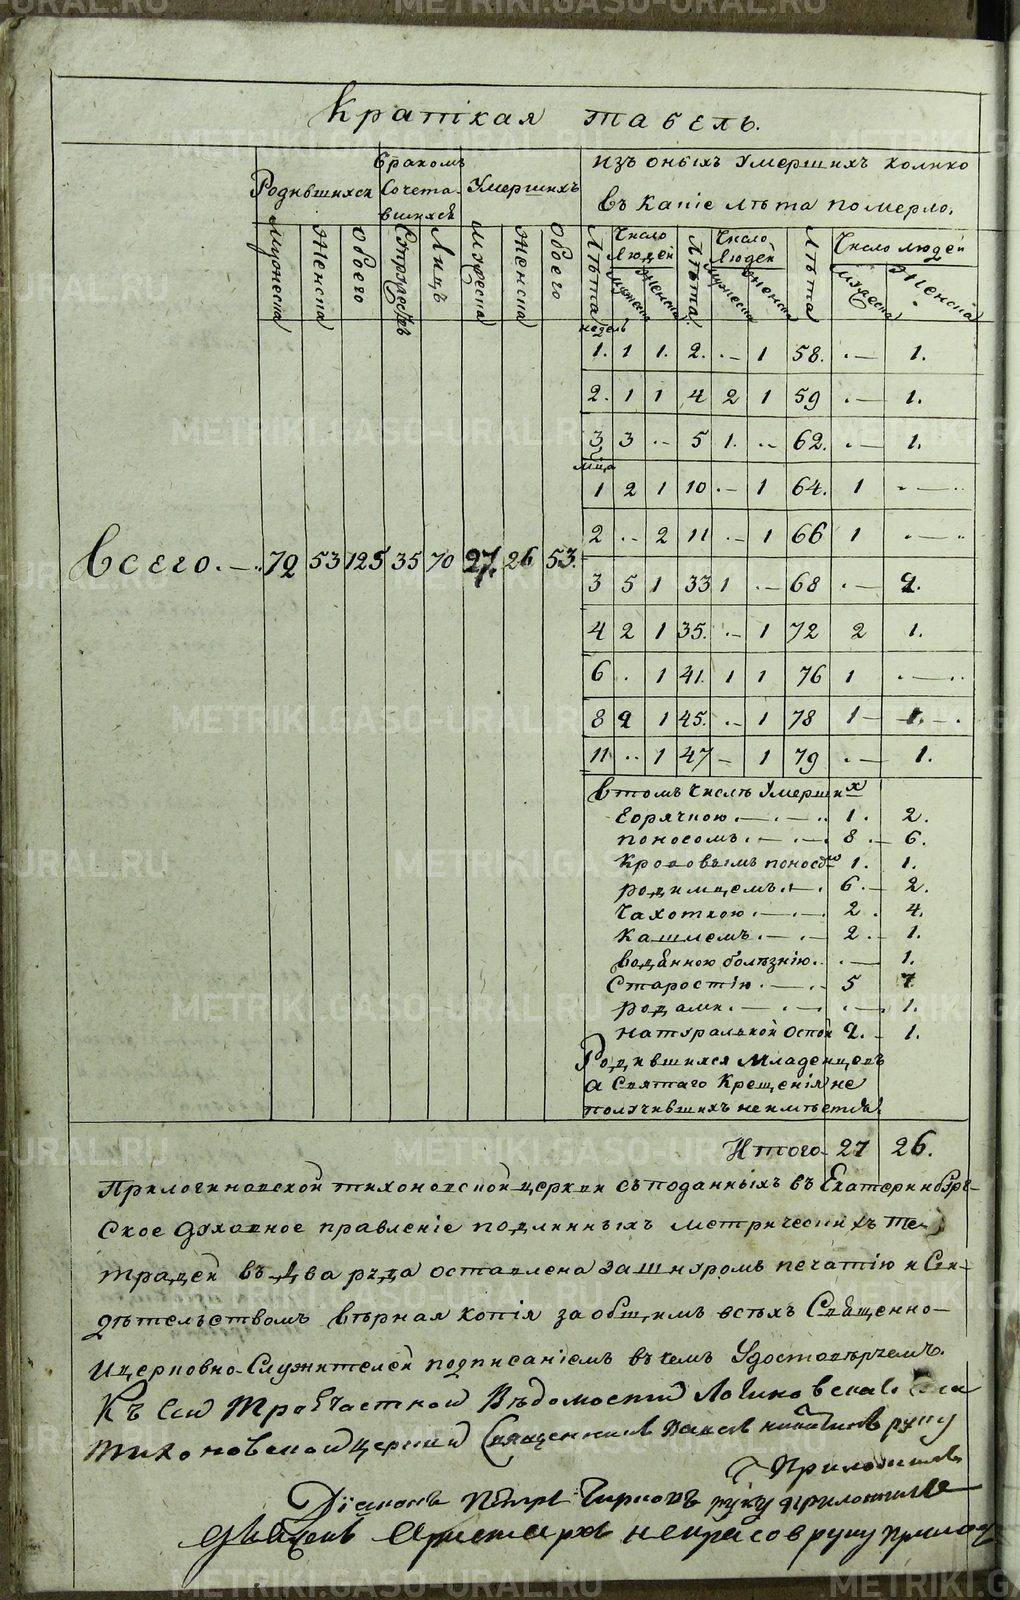 METRIKI.GASO-URAL.RU
Краткая табель.
Родившихся
Бракомъ Сочета-вшихся
Умершихъ
изъ оныхъ Умершихъ колико
въ какіе лѣта померло.
Мужеска Женска Обоего Супружествъ Лицъ Мужеска Женска Обоего
Лѣта Число людей Мужеска Женска Лѣта Число Людей Мужеска Женска Лѣта Число людей Мужеска Женска
недель
1. 1 1. 2. .— 1 58. .— 1.
2. 1 1 4 2 1 59 .— 1.
3 3 .. 5 1. .. 62. .— 1.
м͠ца
1 2 1 10 .— 1 64. 1 .—..
2 .. 2 11 .. 1 66 1 .—..
Всего.—. 72 53 125 35 70 27. 26 53.
3 5 1 33 1 .— 68 .— 2.
4 2 1 35. .. 1 72 2 1.
6 . 1 41. 1 1 76 1 .—..
8 2 1 45. .. 1 78 1 —
11 .. 1 47 — 1 79 .— 1.
Втомъ Числѣ Умершихъ
Горячкою 1. 2.
поносомъ 8 6.
Крововымъ поносомъ 1. 1.
родимцемъ 6. 2.
Чахоткою 2. 4.
Кашлемъ 2. 1.
водяною болѣзнію .— 1.
Старостію 5 7
родами .— 1.
натуральной оспой 2. 1.
Родившихся Младенцевъ
а Святаго Крещенія не
получившихъ не имѣется.
Итого 27 26.
Прилогиновской тихоновской церкви съ поданныхъ въ Екатеринбург-
ское духовное правленіе подлинныхъ метрическихъ те-
традей въ два ряда оставлена за шнуромъ печатію и Сви-
дѣтельствомъ вѣрная копія за общимъ всѣхъ Священно-
И церковно-Служителей подписаніемъ въ чемъ Удостовѣряемъ.
Къ сей Троечастной Вѣдомости Логиновской
тихоновской церкви Священникъ руку
Приложилъ
Діаконъ Петръ руку приложилъ
Аристархъ Некрасов руку прилож